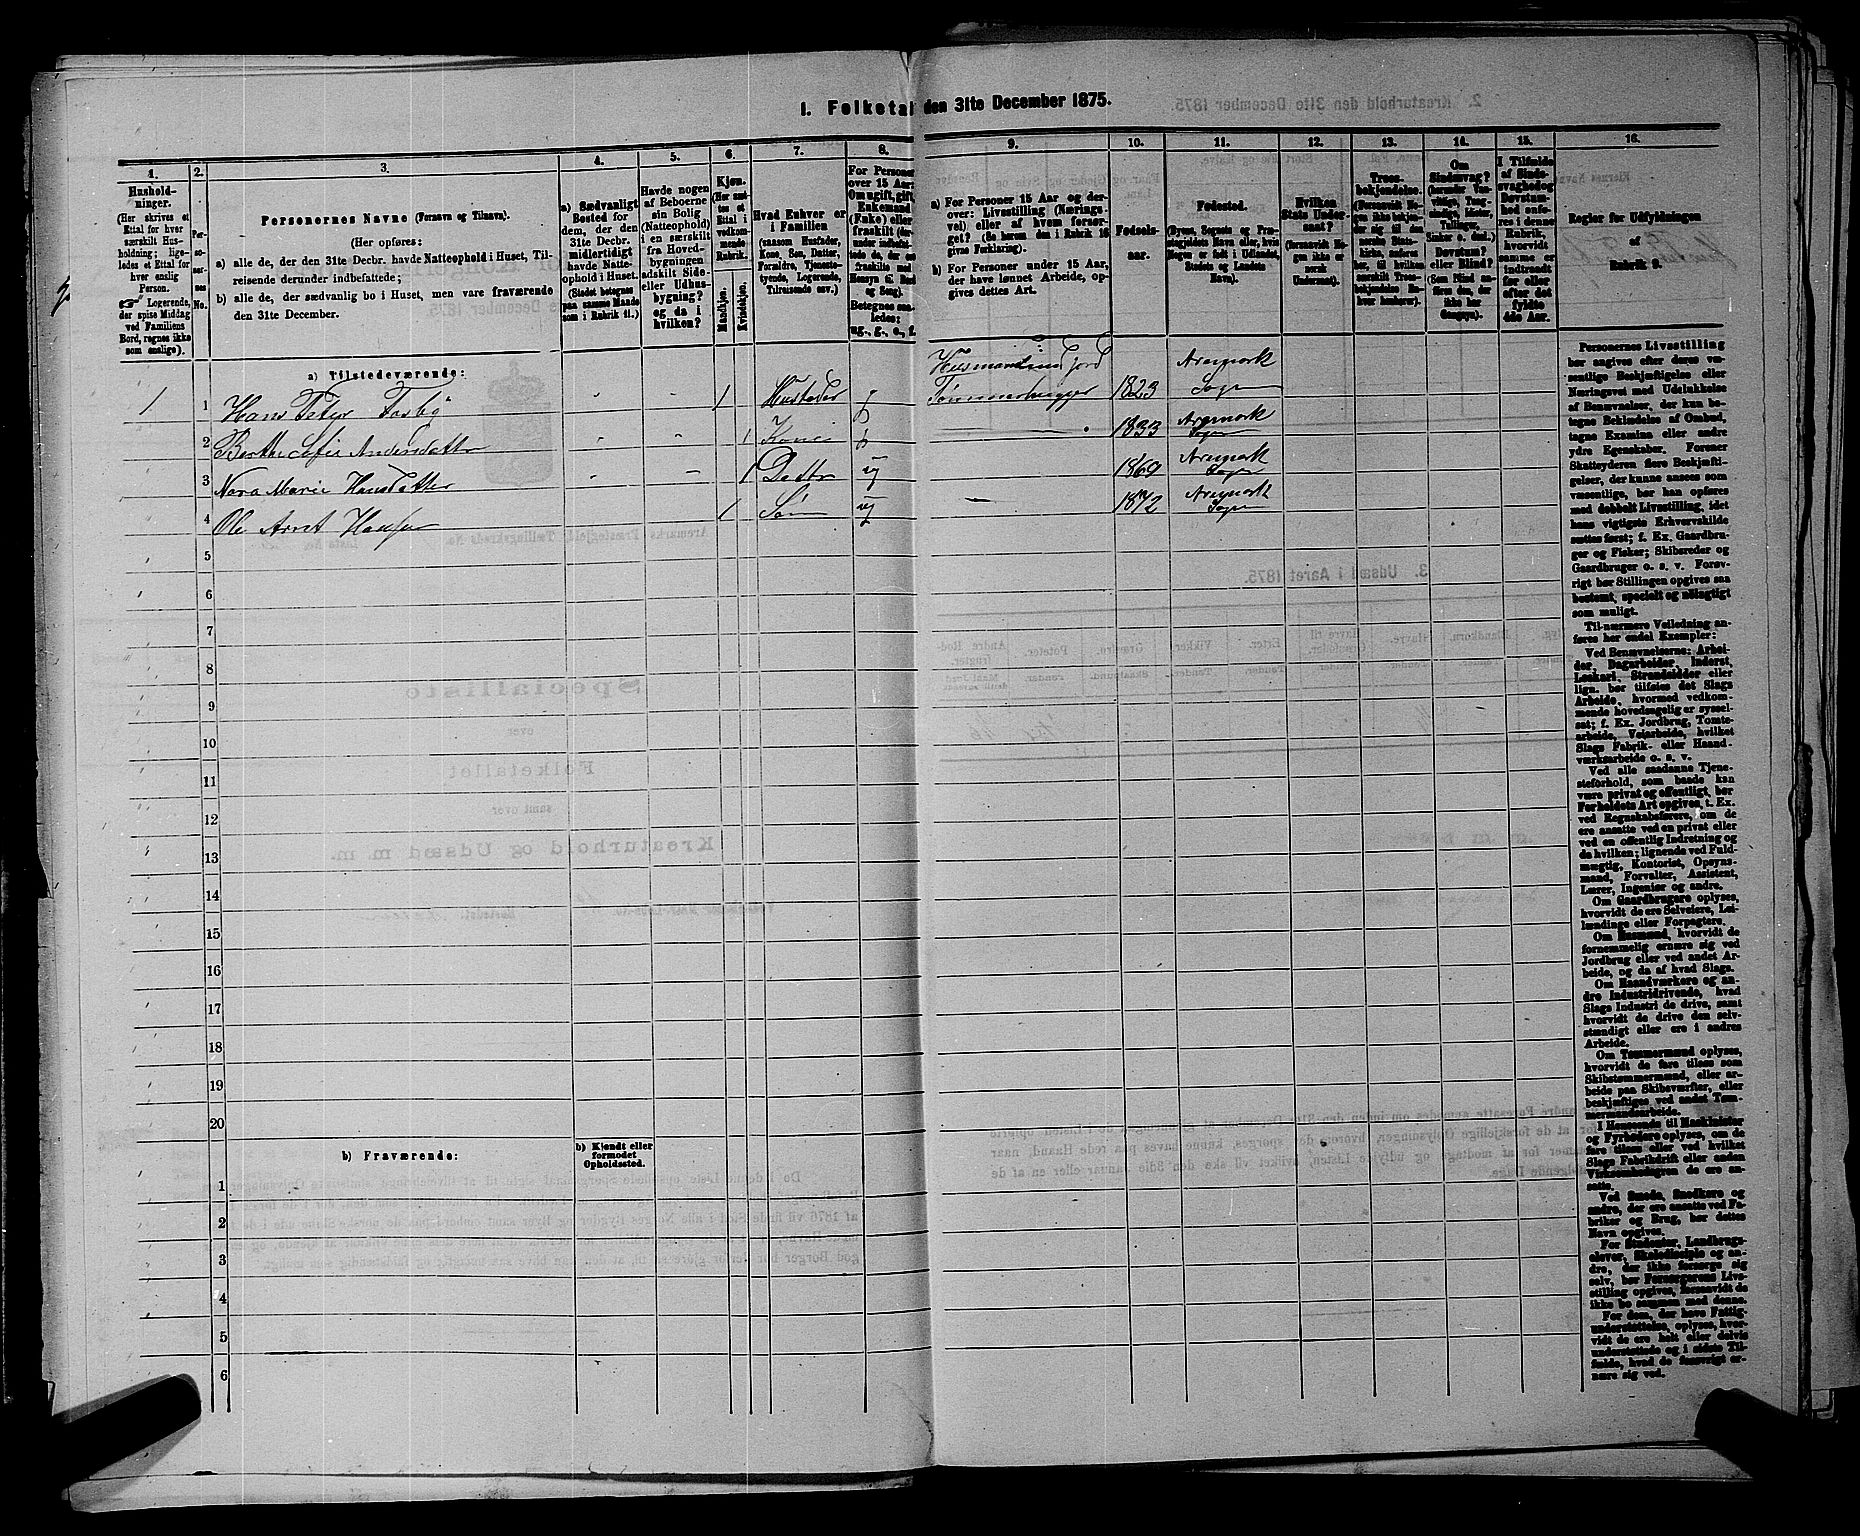 1. Folketal den 31te December 1875.
1.
Hushold-
ninger.
(Her skrives et
Ettal for hver
særskilt Hus-
holdning; lige-
ledes et Ettal for
hver enslig
Person.
☞ Logerende,
der spise Middag
ved Familiens
Bord, regnes ikke
som enslige).
2.
Per-
so-
ner-
nes
No.
3.
Personernes Navne (Fornavn og Tilnavn).
(Her opføres:
a) alle de, der den 31te Decbr. havde Natteophold i Huset, Til-
reisende derunder indbefattede;
b) alle de, der sædvanlig bo i Huset, men vare fraværende
den 31te December.
4.
a) Sædvanligt
Bosted for
dem, der den
31te Decbr.
midlertidigt
havde Natte-
ophold i Huset.
(Stedet betegnes
paa samme Maade
som i Rubrik 11.)
5.
Havde nogen
af Beboerne
sin Bolig
(Natteophold)
i en særskilt
fra Hoved-
bygningen
adskilt Side-
eller Udhus-
bygning?
og da i
hvilken?
6.
Kjøn.
(Her sæt-
tes et
Ettal i
vedkom-
mende
Rubrik.
Mandkjøn.
Kvindekjøn.
7.
Hvad Enhver er
i Familien
(saasom Husfader,
Kone, Søn, Datter,
Forældre, Tjeneste-
tyende, Logerende,
Tilreisende osv.)
8.
For Personer
over 15 Aar:
Om ugift, gift,
Enkemand
(Enke) eller
fraskilt
Betegnes saa-
ledes:
ug., g., e., f.
9.
a) For Personer 15 Aar og der-
over: Livsstilling (Nærings-
vei) eller af hvem forsør-
get? (Se herom den i Rubrik 16
givne Forklaring).
b) For Personer under 15 Aar,
der have lønnet Arbeide, op-
gives dettes Art.
10.
Fødsels-
aar.
11.
Fødested.
(Byens, Sognets og Præ-
stegjeldets Navn eller, hvis
Nogen er født i Udlandet,
Stedets og Landets
Navn).
12.
Hvilken
Stats Under-
saat?
(forsaavidt No-
gen ikke er
norsk
Undersaat).
13.
Troes-
bekjendelse.
(Forsaavidt No-
gen ikke be-
kjender sig til
den norske
Stats-
kirke, anføres
her, til hvilken
særskilt Troes-
bekjendelse En-
hver henhører).
14.
Om
Sindssvag?
Døvstum?
eller Blind?
15.
I Tilfælde
af Sinds-
svaghed og
Døvstum-
hed anfø-
res i denne
Rubrik,
hvorvidt
samme er
indtraadt
før eller
efter det
fyldte
4de Aar.
16.
Regler for Udfyldningen
af
Rubrik 9.
a) Tilstedeværende:
1 1 Hans Petter Fosbÿ - - 1 Husfader g Husmand med Jord Tømmerhugger 1823 Aremark Sogn
2 Berthe Sofie Andersdatter - - 1 Kone g 1833 Aremark Sogn
3 Nora Marie Hansdatter - - 1 Dattr ug 1869 Aremark Sogn
4 Ole Arnt Hansen 1 Søn ug - 1872 Aremark Sogn
5
6
7
8
9
10
11
12
13
14
15
16
17
18
19
20
b) Fraværende:
b) Kjendt eller
formodet
Opholdssted.
1
2
3
4
5
6
Personernes Livsstilling
bør angives efter deres væ-
sentlige Beskjæftigelse eller
Næringsvei med Udelukkelse
af Benævnelser, der kun be-
tegne Beklædelse af Ombud,
tagne Examina eller andre
ydre Egenskaber. Forener
Skatteyderen flere Beskjæfti-
gelser, der kunne ansees som
væsentlige, bør han opføres
med dobbelt Livsstilling, idet
hans vigtigste Erhvervskilde
sættes først; f. Ex. Gaardbru-
ger og Fisker; Skibsreder og
Gaardbruger o. s. v. Forøv-
rigt bør Stillingen opgives saa
bestemt, specielt og nøiagtigt
som muligt.
Til nærmere Veiledning an-
føres her endel Exempler:
Ved Benævnelserne: Arbei-
der, Dagarbeider, Inderst,
Løskarl, Strandsidder eller
lign. bør tilføies det Slags
Arbeide, hvormed vedkom-
mende hovedsagelig er syssel-
sat; f. Ex. Jordbrug, Tomte-
arbeide, Veiarbeide, hvilket
Slags Fabrik- eller Haand-
værksarbeide o. s. v.
Ved alle saadanne Tjene-
steforhold, som baade kan
være privat og offentligt, bør
Forholdets Art opgives, t. Ex.
ved Regnskabsførere, om de
ere ansatte ved en privat eller
ved en offentlig Indretning og
da hvilken; lignende ved Fuld-
mægtig, Kontorist, Opsyns-
mand, Forvalter, Assistent,
Lærer, Ingeniør og andre.
Om Gaardbrugere oplyses,
hvorvidt de ere Selveiere, Lei-
lændinge eller Forpagtere.
Om Husmænd, hvorvidt de
fornemmelig ernære sig ved
Jordbrug eller ved andet Ar-
beide, og da af hvad Slags.
Om Haandværkere og an-
dre Industridrivende, hvad
Slags Industri de drive, samt
hvorvidt de drive den selv-
stændigt eller ere i andres
Arbeide.
Om Tømmermænd oplyses,
hvorvidt de fare tilsøs som
Skibstømmermænd, eller ar-
beide paa Skibsværfter, eller
beskjæftiges ved andet Tøm-
mermandsarbeide.
I Henseende til Maskinister
og Fyrbødere oplyses, om de
fare tilsøs eller ved hvilket
Slags Fabrikdrift eller anden
Virksomhed de ere an-
satte.
Ved Smede, Snedkere og
andre, der ere ansatte ved Fa-
briker og Brug, bør dettes
Navn opgives.
For Studenter, Landbrugs-
elever, Skoledisciple og an-
dre, der ikke forsørge sig
selv, bør Forsørgerens Livs-
stilling opgives, forsaavidt de
ikke bo sammen med denne.
For dem, der have Fattig-
understøttelse, oplyses, hvor-
vidt de ere helt eller delvis
understøttede og i sidste Til-
fælde, hvad de forøvrigt er-
nære sig ved.